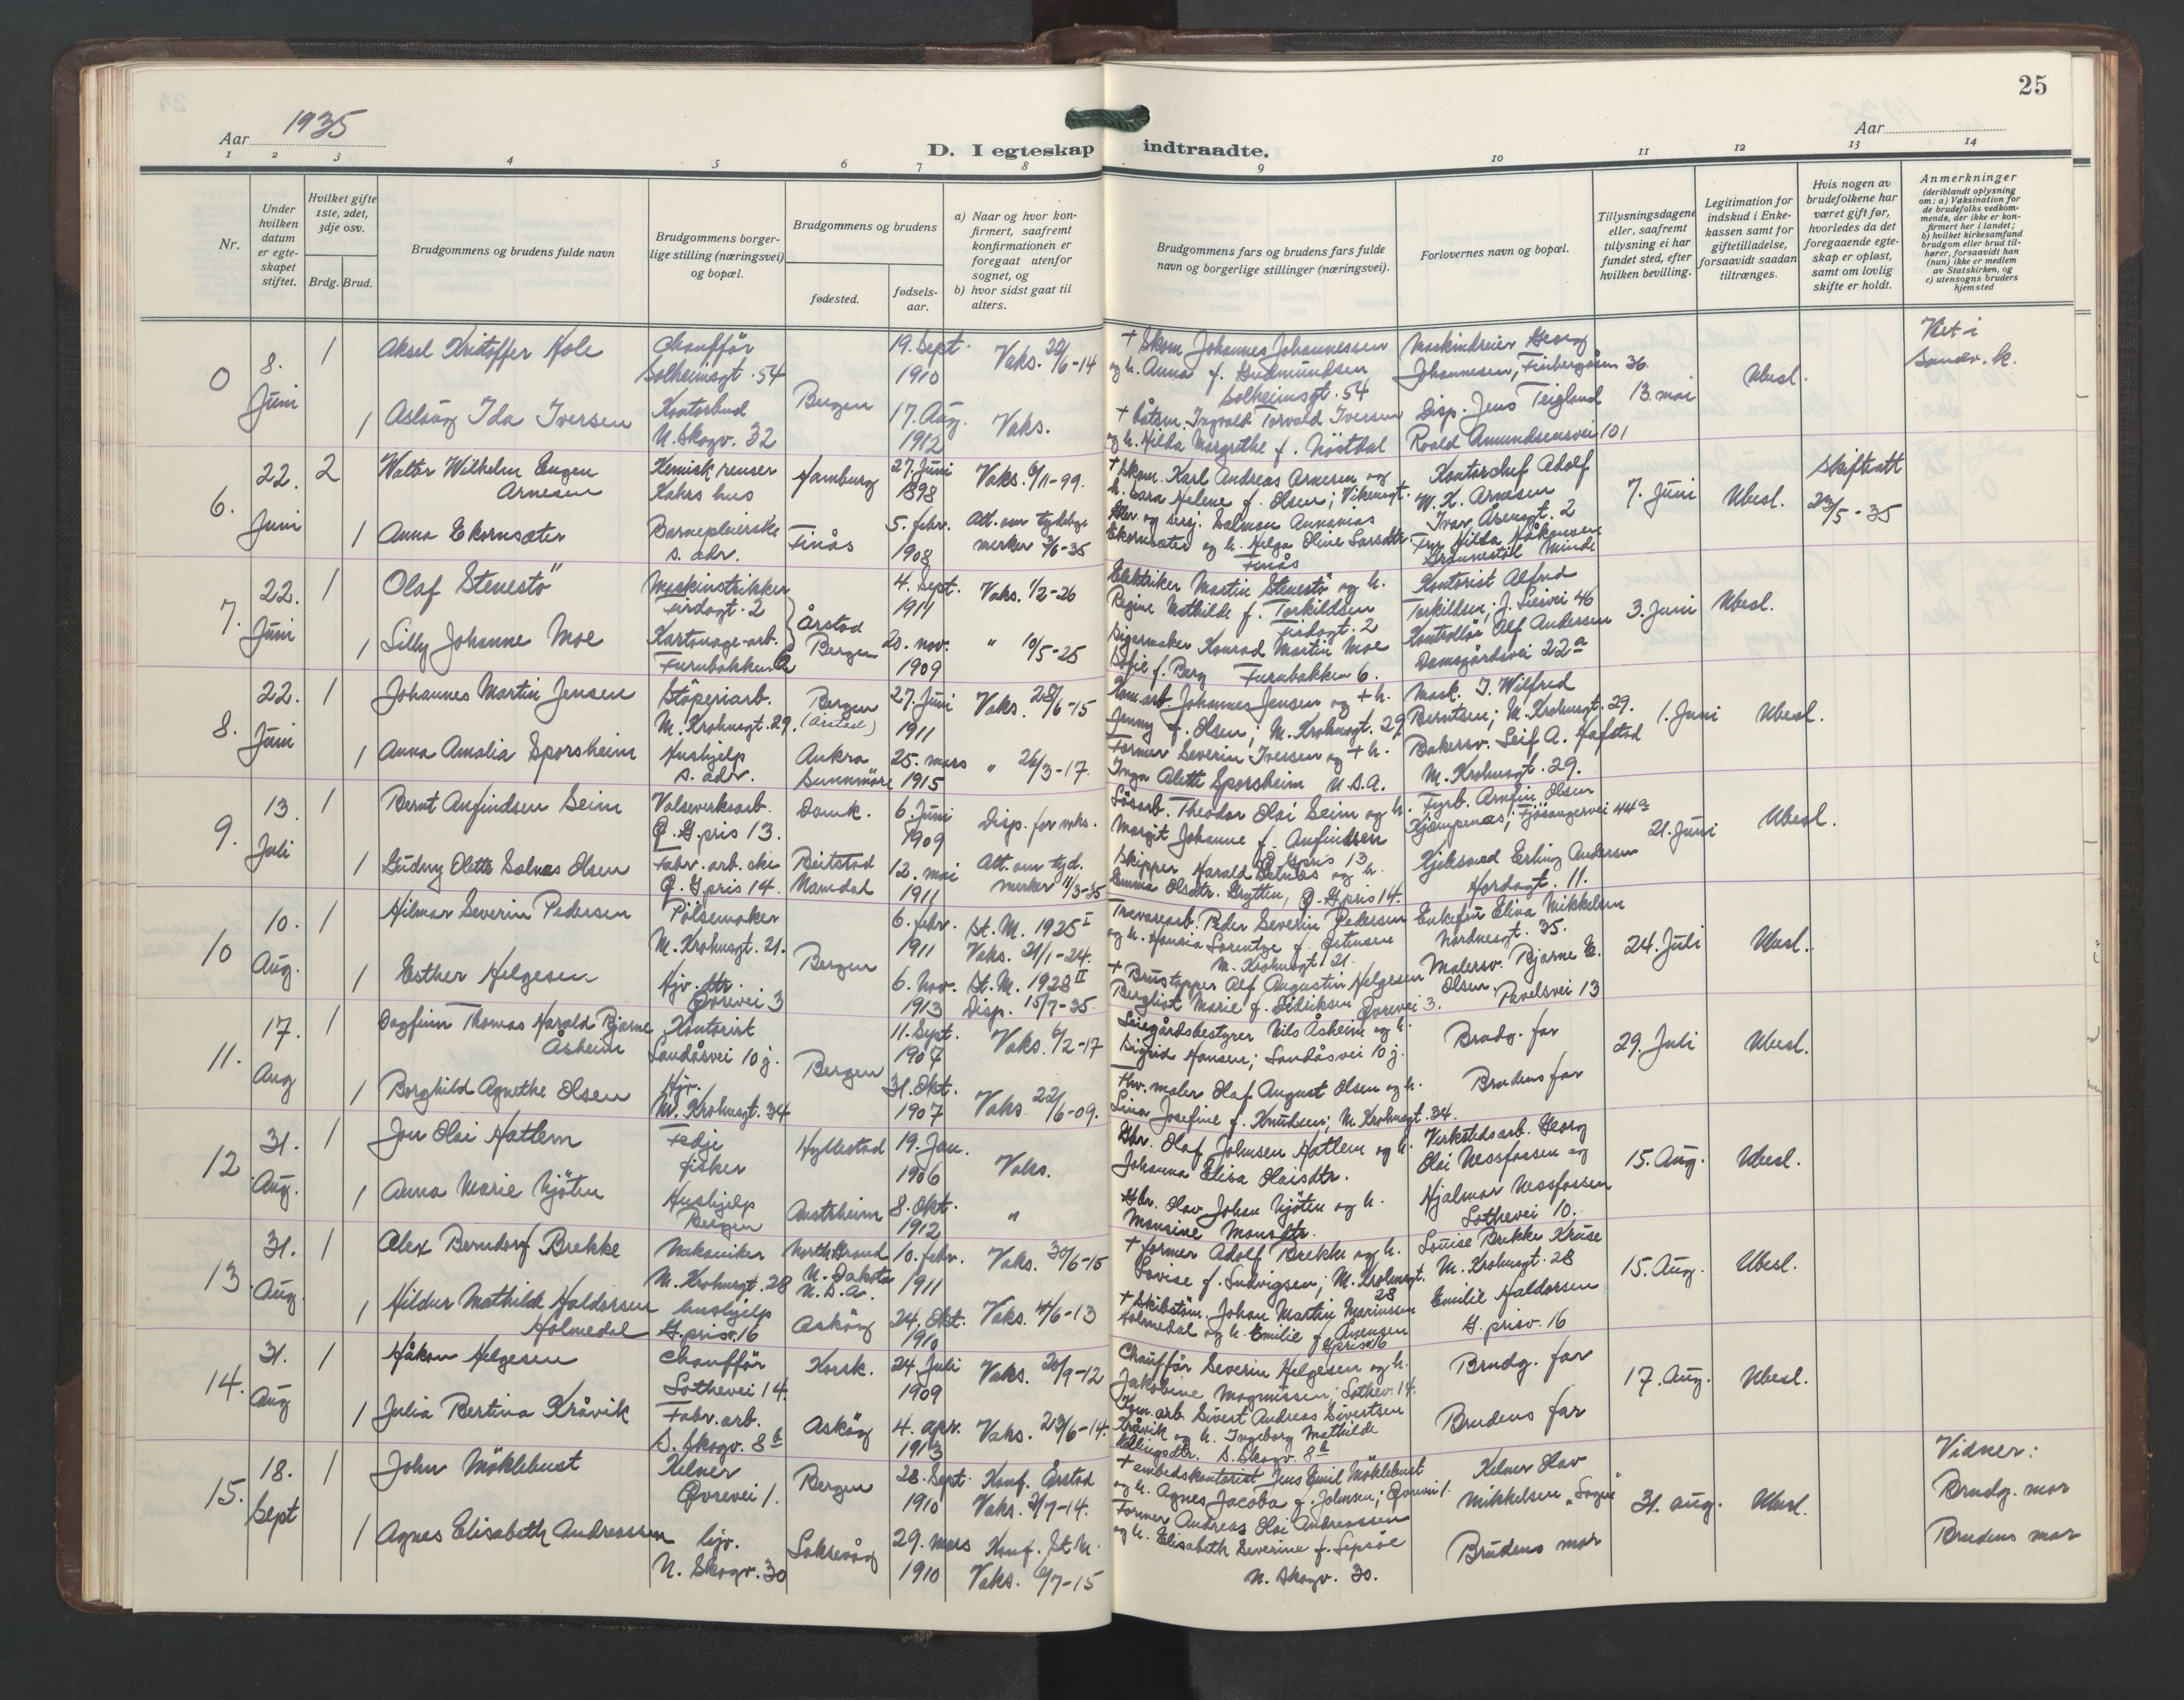 25
Aar 1935
Aar
D. I egteskap indtraadte.
1 2 3 4 5 6 7 8 9 10 11 12 13 14
Nr.
Under hvilken datum er egteskapet stiftet.
Hvilket gifte 1ste, 2det, 3dje osv.
Brdg. Brud.
Brudgommens og brudens fulde navn
Brudgommens borgerlige stilling (næringsvei) og bopæl.
Brudgommens og brudens
fødested.
fødselsaar.
a) Naar og hvor konfirmert, saafremt konfirmationen er foregaat utenfor sognet, og
b) hvor sidst gaat til alters.
Brudgommens fars og brudens fars fulde navn og borgerlige stillinger (næringsvei).
Forlovernes navn og bopæl.
Tillysningsdagene eller, saafremt tillysning ei har fundet sted, efter hvilken bevilling.
Legitimation for indskud i Enkekassen samt for giftetilladelse, forsaavidt saadan tiltrænges.
Hvis nogen av brudefolkene har været gift før, hvorledes da det foregaaende egteskap er opløst, samt om lovlig skifte er holdt.
Anmerkninger
(deriblandt oplysning om: a) Vaksination for de brudefolks vedkommende, der ikke er konfirmert her i landet; b) hvilket kirkesamfund brudgom eller brud tilhører, forsaavidt han (hun) ikke er medlem av Statskirken, og c) utensogns bruders hjemsted
0 8. Juni
1 Aksel Kristoffer Hole
Chauffør
Solheimsgt. 54
Bergen
19. Sept. 1910
Vaks. 22/6-14
+ Skom. Johannes Johannessen
og h. Anna f. Gudmundsen
Solheimsgt. 54
Maskindreier Georg
Johannesen, Finbergåsen 36
13. mai
Ubesl.
Viet i
Sandv. k.
1 Aslaug Ida Iversen
Kontorbud
N. Skogv. 32
17. Aug. 1912
Vaks.
+ båtsm. Ingvald Torvald Iversen
og h. Hilda Margrethe f. Nøstdal
Disp. Jens Teigland
Roald Amundsensvei 101
6. 22. Juni
2 Walter Wilhelm Eugen
Arnesen
Kemisk renser
Kahrs hus
Hamburg
27. Juni 1898
Vaks. 6/11-99.
+ Skom. Karl Andreas Arnesen og
h. Sara Helene f. Olsen; Vikensgt.
Kontorchef Adolf
W. K. Arnesen
Ivar Åsensgt. 2
7. Juni
Ubesl.
Skifteatt
23/5-35
1 Anna Ekornsæter
Barnepleierske
s. adr.
Finås
5. febr. 1908
Att. om tydelige
merker 7/6-35
Gbr. og lensj. Salmon Annanias
Ekornsæter og h. Helga Oline Larsdtr.
Finås
Fru Hilda Håkonsen
Minde
7. 22. Juni
1 Olaf Stenestø
Maskinstrikker
Firdagt. 2
Årstad
4. Sept. 1911
Vaks. 1/2-26
Elektriker Martin Stenestø og h.
Regine Mathilde f. Torkildsen
Firdagt. 2
Kontorist Alfred
Torkildsen; J. Liesvei 46
3. Juni
Ubesl.
1 Lilly Johanne Moe
Kartonage-arb.
Furubakken 6
Bergen
20. nov. 1909
" 10/5-25
Sigarmaker Konrad Martin Moe
Sofie f. Berg Furubakken 6.
Kontrollør Alf Andersen
Damsgårdsvei 22a
8. 22. Juni
1 Johannes Martin Jensen
Støperiarb.
M. Krohnsgt. 29.
Bergen
(Årstad)
27. Juni 1911
Vaks. 28/6-15
Kom. arb. Johannes Jensen og + h.
Jenny f. Olsen; M. Krohnsgt. 29.
Mask. J. Wilfred
Berntsen; M. Krohnsgt. 29.
1. Juni
Ubesl.
1 Anna Amalia Sporsheim
Hushjelp
s. adr.
Aukra
Sunnmøre
25. mars 1915
" 26/3-17.
Former Severin Iversen og + h.
Inga Alette Sporsheim U.S.A.
Bakersv. Leif A. Hafstad
M. Krohnsgt. 29.
9. 13. Juli
1 Bernt Anfindsen Seim
Valseverksarb.
Ø. G. pris 13.
Damk.
6. Juni 1909
Disp. for vaks.
Løsarb. Theodor Olai Seim og h.
Margit Johanne f. Anfindsen
Ø. G. pris 13
Fyrb. Arnfin Olsen
Kjempenæs; Fjøsangervei 44a
21. Juni
Ubesl.
1 Gudny Olette Selnæs Olsen
Fabr. arb. ske
Ø. G. pris 14.
Beitstad
Namdal
12. mai 1911
Att. om tyd.
merker 11/3-35
Skipper Harald Selnæs og h.
Emma Olsdtr. Grytten, Ø. G. pris 14.
Kjelsmed Erling Andersen
Hordagt. 11.
10 10. Aug.
1 Hilmar Severin Pedersen
Pølsemaker
M. Krohnsgt. 21.
Bergen
6. febr. 1911
St. M. 1925 I
Vaks. 21/1-24.
Travarearb. Peder Severin Pedersen
og h. Hansia Lorentze f. Østensen
M. Krohnsgt. 21.
Enkefru Elina Mikkelsen
Nordnesgt. 35.
24. Juli
Ubesl.
1 Esther Helgesen
Hjv. dtr.
Øvrevei 3
6. Nov. 1913
St. M. 1928 II
Disp. 15/7-35.
+ Brustapper Alf Augustin Helgesen
Bergliot Marie f. Didriksen Øvrevei 3.
Malersv. Bjarne E.
Olsen, Pavelsvei 13
11. 17. Aug
1 Dagfinn Thomas Harald Bjarne
Åsheim
Kontorist
Landåsvei 10 j.
Bergen
11. Sept. 1907
Vaks. 6/2-17
Leiegårdsbestyrer Nils Åsheim og h.
Sigrid Hansen; Landåsvei 10 j.
Brudg. far
29. Juli
Ubesl.
1 Borghild Agnethe Olsen
Hjv.
M. Krohnsgt. 34
31. Okt. 1907
Vaks. 22/6-09.
Hv. maler Olaf August Olsen og h.
Lina Josefine f. Knudsen; M. Krohnsgt. 34.
Brudens far
12 31. Aug.
1 Jon Olai Hatlem
Fedje
fisker
Hyllestad
19. Jan. 1906
Vaks.
Gbr. Olaf Johnsen Hatlem og h.
Johanna Elisa Olaisdtr.
Verkstedsarb. Georg
Olai Nessfossen og
15. Aug.
Ubesl.
1 Anna Marie Njøten
Hushjelp
Bergen
Austrheim
8. Okt. 1912
"
Gbr. Olav Johan Njøten og h.
Monsine Monsdtr.
Hjalmar Nessfossen
Lothevei 10.
13. 31. Aug
1 Alex Berndorf Brekke
Mekaniker
M. Krohnsgt. 28
North Grand
N. Dakota
U.S.A.
10. febr. 1911
Vaks. 30/6-15
+ former Adolf Brekke og h.
Lovise f. Ludvigsen; M. Krohnsgt.
28
Louise Brekke Kruse
M. Krohnsgt. 28
15. Aug.
Ubesl.
1 Hildur Mathilde Haldorsen
Holmedal
hushjelp
G. prisv. 16
Askøy
24. Okt. 1910
Vaks. 4/6-13
+ Skibstøm. Johan Martin Marinussen
Holmedal og h. Emilie f. Arnesen
G. prisv. 16
Emilie Haldorsen
G. prisv. 16
14. 31. Aug
1 Håkon Helgesen
Chauffør
Lothevei 14.
Korsk.
24. Juli 1909
Vaks. 20/9-12
Chauffør Severin Helgesen og h.
Jakobine Magnussen; Lothev. 14.
Brudg. far
17. Aug.
Ubesl.
1 Julia Bertina Kråvik
Fabr. arb.
S. Skogv. 8b
Askøy
4. apr. 1913
Vaks. 23/6-14.
Kom. arb. Sivert Andreas Sivertsen
Kråvik og h. Ingeborg Mathilde
S. Skogv. 8b
Brudens far
15. 18. Sept
1 John Møklebust
Kelner
Øvrevei 1.
Bergen
28. Sept. 1910
Konf. Årstad
Vaks. 2/7-14.
+ embedskontorist Jens Emil Møklebust
og h. Agnes Jacoba f. Johnsen; Øvrevei 1.
Kelner Olav
Mikkelsen
31. aug.
Ubesl.
Vidner:
Brudg. mor
Brudens mor
1 Agnes Elisabeth Andreassen
hjv.
N. Skogv. 30
Laksevåg
29. mars 1910
Konf. St. M.
Vaks. 6/7-15
Former Andreas Olai Andreassen
og h. Elisabeth Severine f. Lepsøe
N. Skogv. 30.
Brudens mor